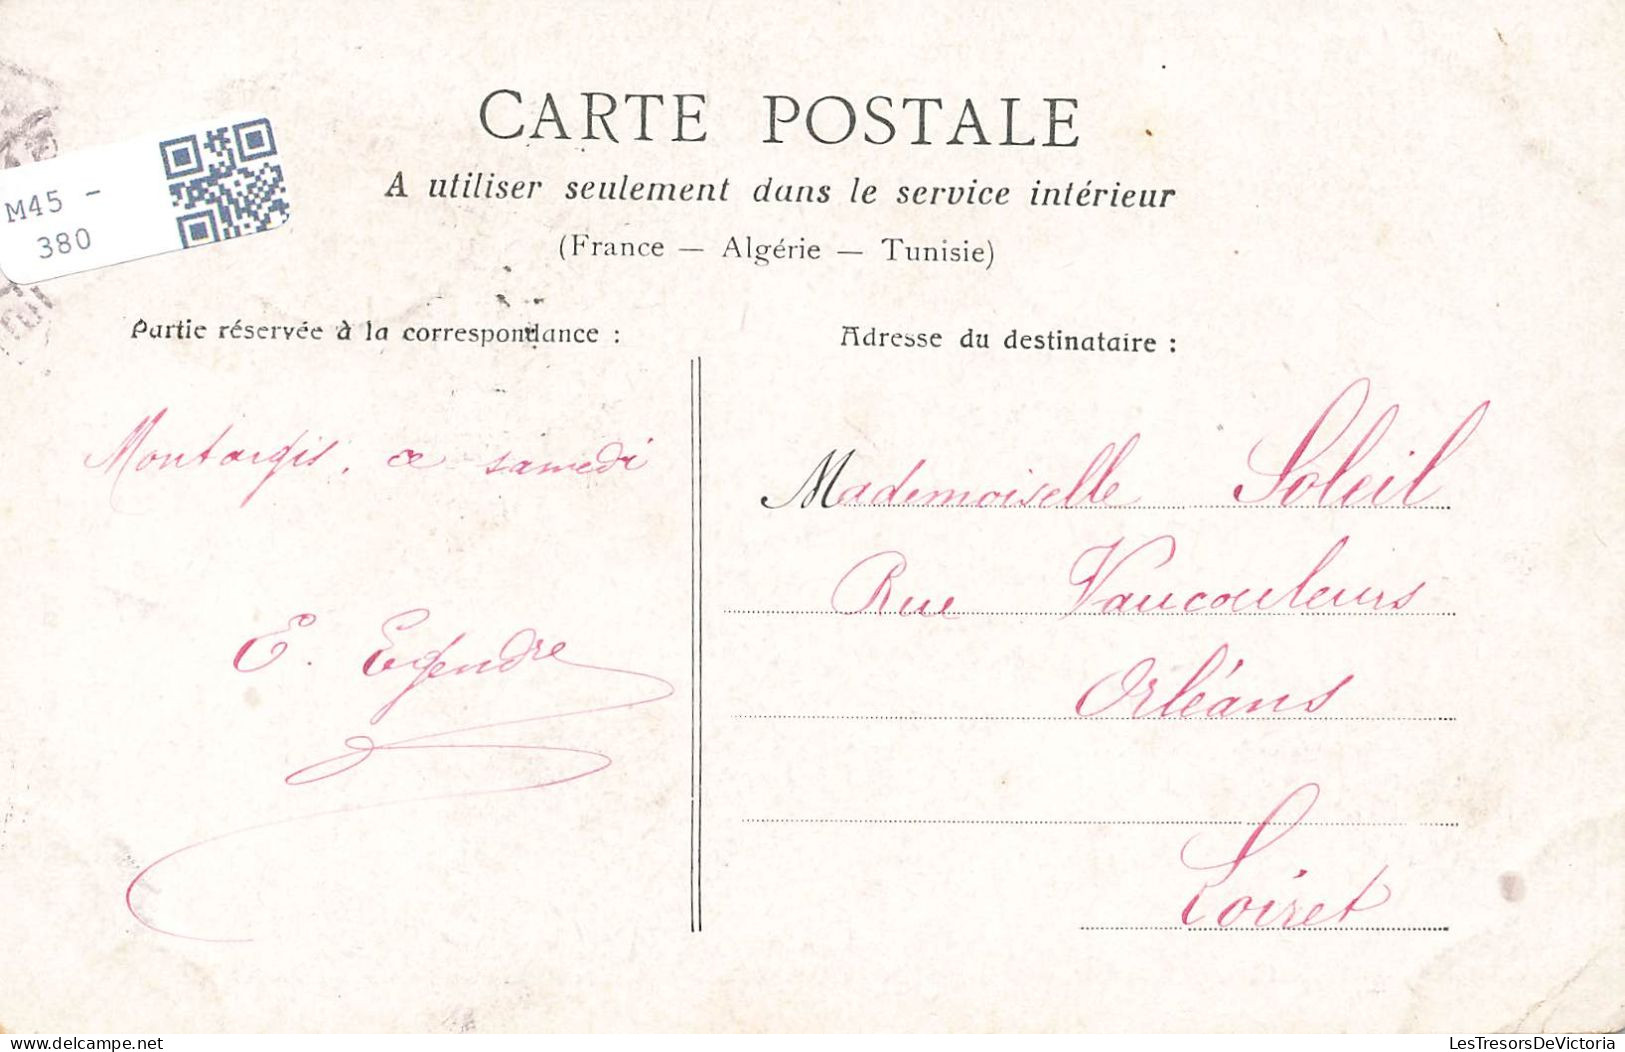 CARTE POSTALE
A utiliser seulement dans le service intérieur
(France — Algérie — Tunisie)
M45 -
380
Partie réservée à la correspondance :
Montargis, ce samedi
E.
Adresse du destinataire :
Mademoiselle Soleil
Rue Vaucouleurs
Orléans
Loiret
delcampe.net
LesTresorsDeVictoria